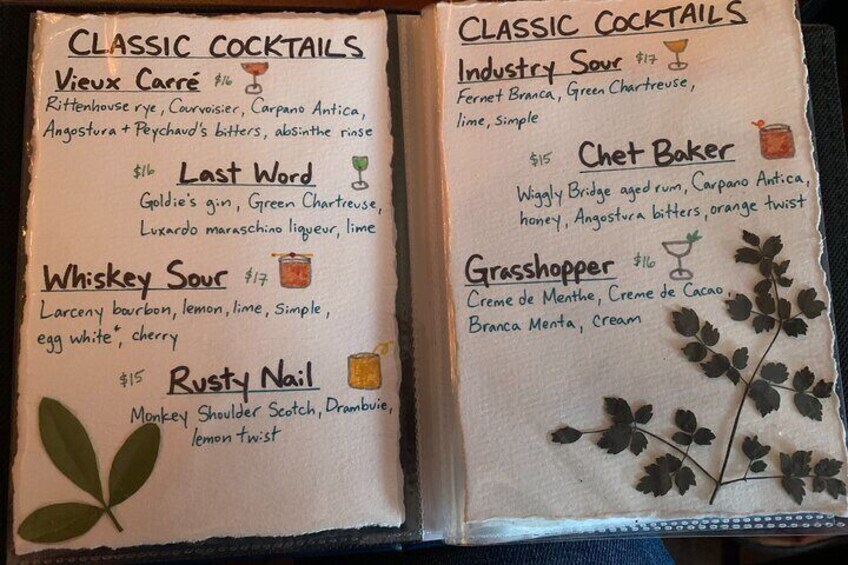 CLASSIC COCKTAILS
Vieux Carré $16
Rittenhouse rye, Courvoisier, Carpano Antica,
Angostura + Peychaud's bitters, absinthe rinse
$16 Last Word
Goldie's gin, Green Chartreuse,
Luxardo maraschino liqueur, lime
Whiskey Sour $17
Larceny bourbon, lemon, lime, simple,
egg white*, cherry
$15 Rusty Nail
Monkey Shoulder Scotch, Drambuie,
lemon twist
CLASSIC COCKTAILS
Industry Sour $17
Fernet Branca, Green Chartreuse,
lime, simple
$15 Chet Baker
Wiggly Bridge aged rum, Carpano Antica,
honey, Angostura bitters, orange twist
Grasshopper $16
Creme de Menthe, Creme de Cacao,
Branca Menta, cream